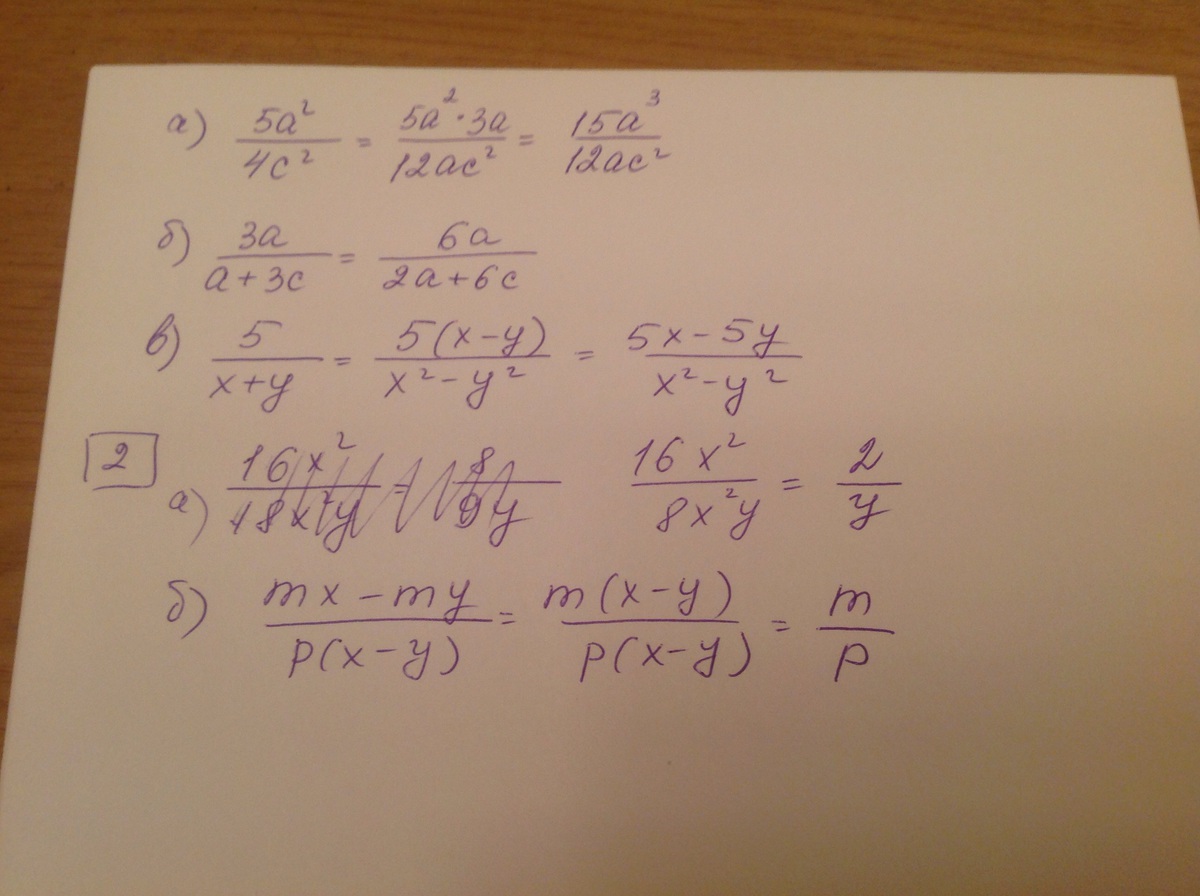 а) 5a²/4c² = 5a²·3a/12ac² = 15a³/12ac²
б) 3a/a+3c = 6a/2a+6c
в) 5/x+y = 5(x-y)/x²-y² = 5x-5y/x²-y²
2 а) 16x²/18x²y = 8/9y 16x²/8x²y = 2/y
б) mx-my/p(x-y) = m(x-y)/p(x-y) = m/p